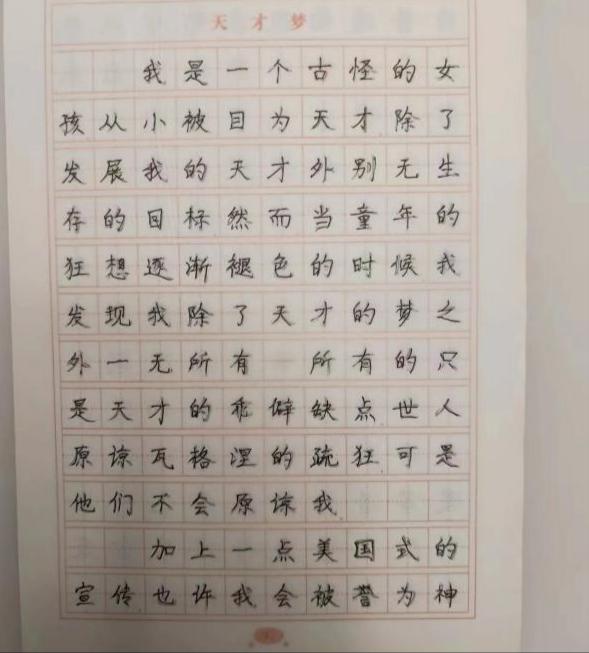 天才梦
我是一个古怪的女
孩从小被目为天才除了
发展我的天才外别无生
存的目标然而当童年的
狂想逐渐褪色的时候我
发现我除了天才的梦之
外一无所有 所有的只
是天才的乖僻缺点世人
原谅瓦格涅的疏狂可是
他们不会原谅我
加上一点美国式的
宣传也许我会被誉为神